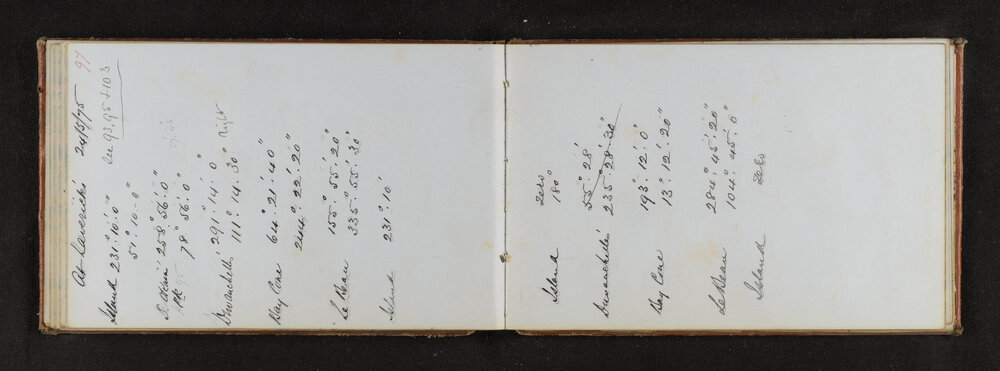 At Kaveriki 24/5/75 97
See 93.95 & 103
Island 231°.10'.0"
51°.10'.0"
258°.56'.0"
Pk 78°.56'.0"
Dwanchellé 291°.14'.0
111°.14'.30" right
Hay Cone 64°.21'.40"
244°.22'.20"
Le Beau 155°.55'.20"
335°.55'.30"
Island 231°.10'
Island zero
180°
Dwanchellé 55°.28'
235°.28'.30"
Hay Cone 193°.12'.0"
13°.12'.20"
Le Beau 284°.45'.20"
104°.45'.0"
Island zero